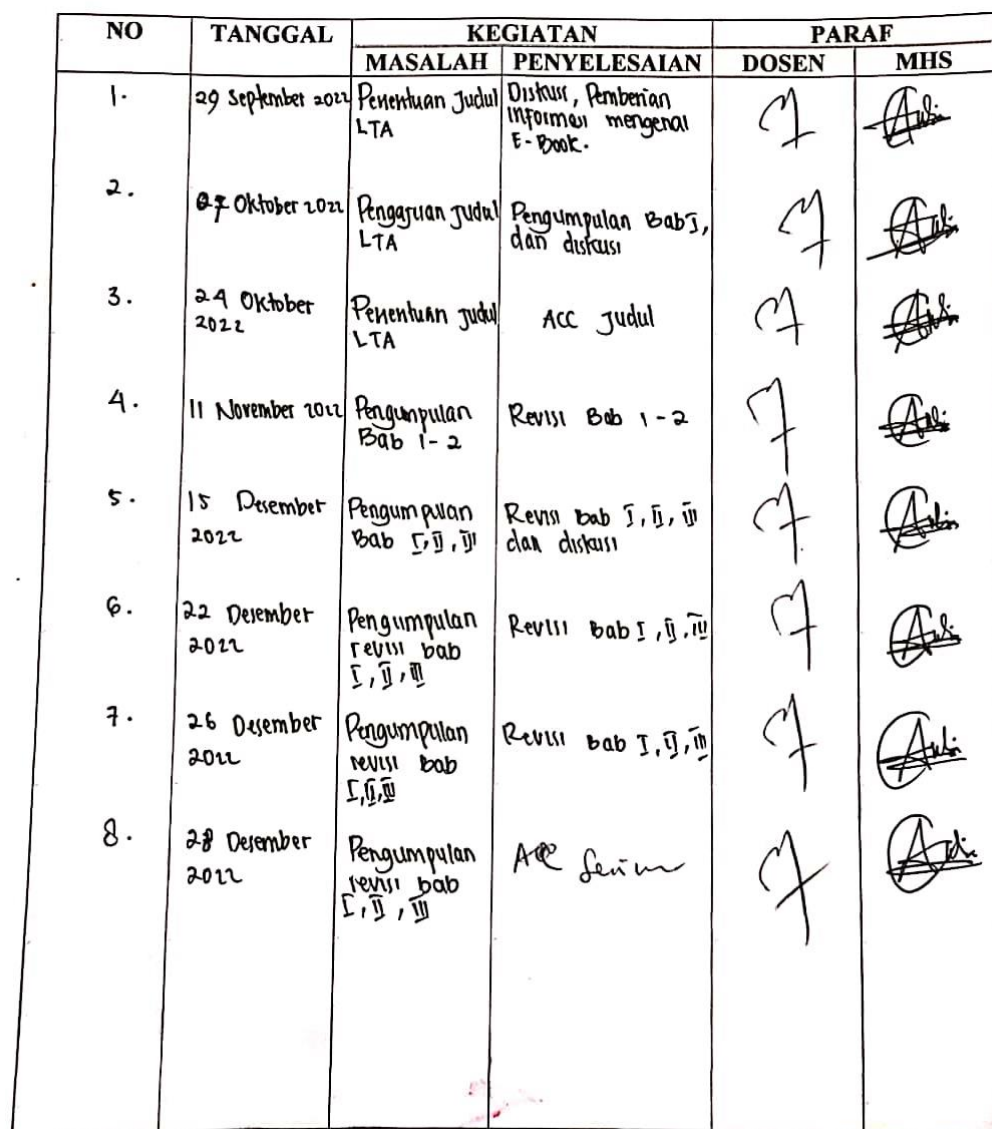 NO TANGGAL KEGIATAN PARAF
MASALAH PENYELESAIAN DOSEN MHS
1. 29 September 2022 Penentuan Judul LTA Diskusi, Pemberian Informasi mengenai E-Book.
2. 07 Oktober 2022 Pengajuan Judul LTA Pengumpulan Bab I, dan diskusi
3. 24 Oktober 2022 Penentuan Judul LTA ACC Judul
4. 11 November 2022 Pengumpulan Bab 1-2 Revisi Bab 1-2
5. 15 Desember 2022 Pengumpulan Bab I, II, III Revisi Bab I, II, III dan diskusi
6. 22 Desember 2022 Pengumpulan revisi bab I, II, III Revisi Bab I, II, III
7. 26 Desember 2022 Pengumpulan revisi bab I, II, III Revisi Bab I, II, III
8. 28 Desember 2022 Pengumpulan revisi bab I, II, III ACC